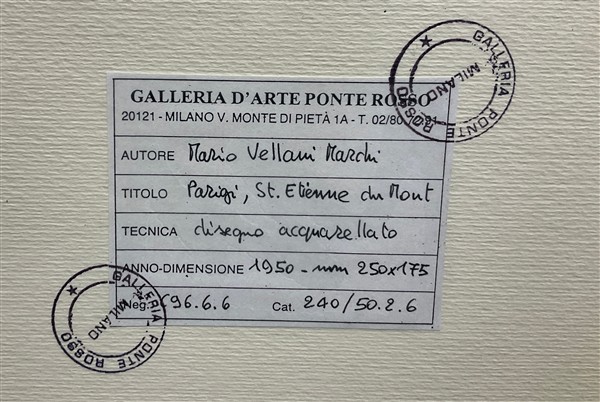 GALLERIA D'ARTE PONTE ROSSO
20121 - MILANO V. MONTE DI PIETÀ 1A - T. 02/80
AUTORE Mario Vellani Marchi
TITOLO Parigi, St. Etienne du Mont
TECNICA disegno acquarellato
ANNO-DIMENSIONE 1950 - mm 250x175
Neg. 96.6.6 Cat. 240/50.2.6
GALLERIA PONTE ROSSO
MILANO
GALLERIA PONTE ROSSO
MILANO